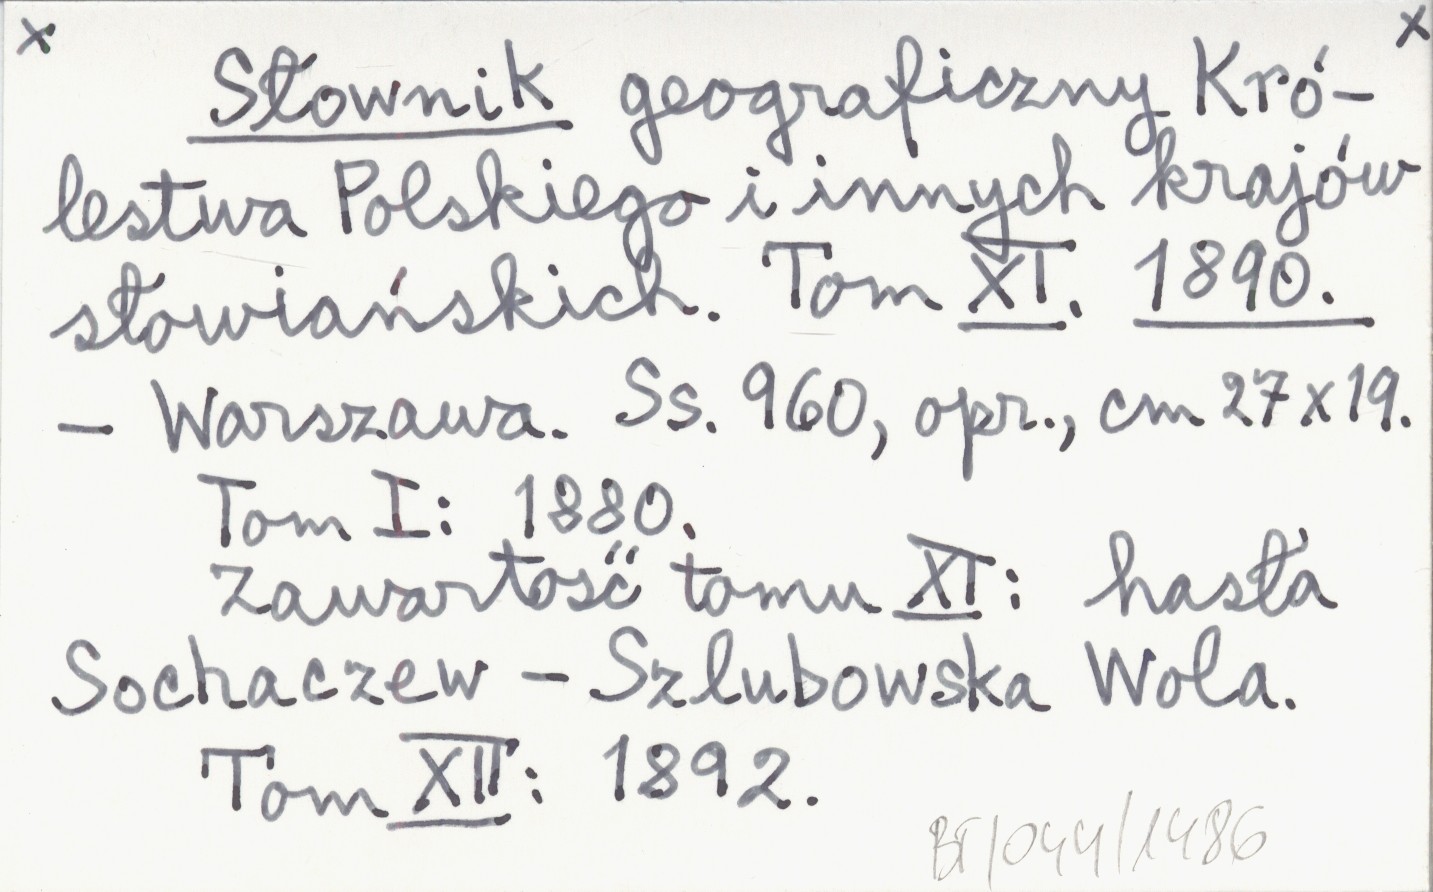 x x
Słownik geograficzny Kró-
lestwa Polskiego i innych krajów
słowiańskich. Tom XI. 1890.
– Warszawa. Ss. 960, opr., cm 27x19.
Tom I: 1880.
Zawartość tomu XI: hasła
Sochaczew – Szlubowska Wola.
Tom XII: 1892.
BT/044/1486